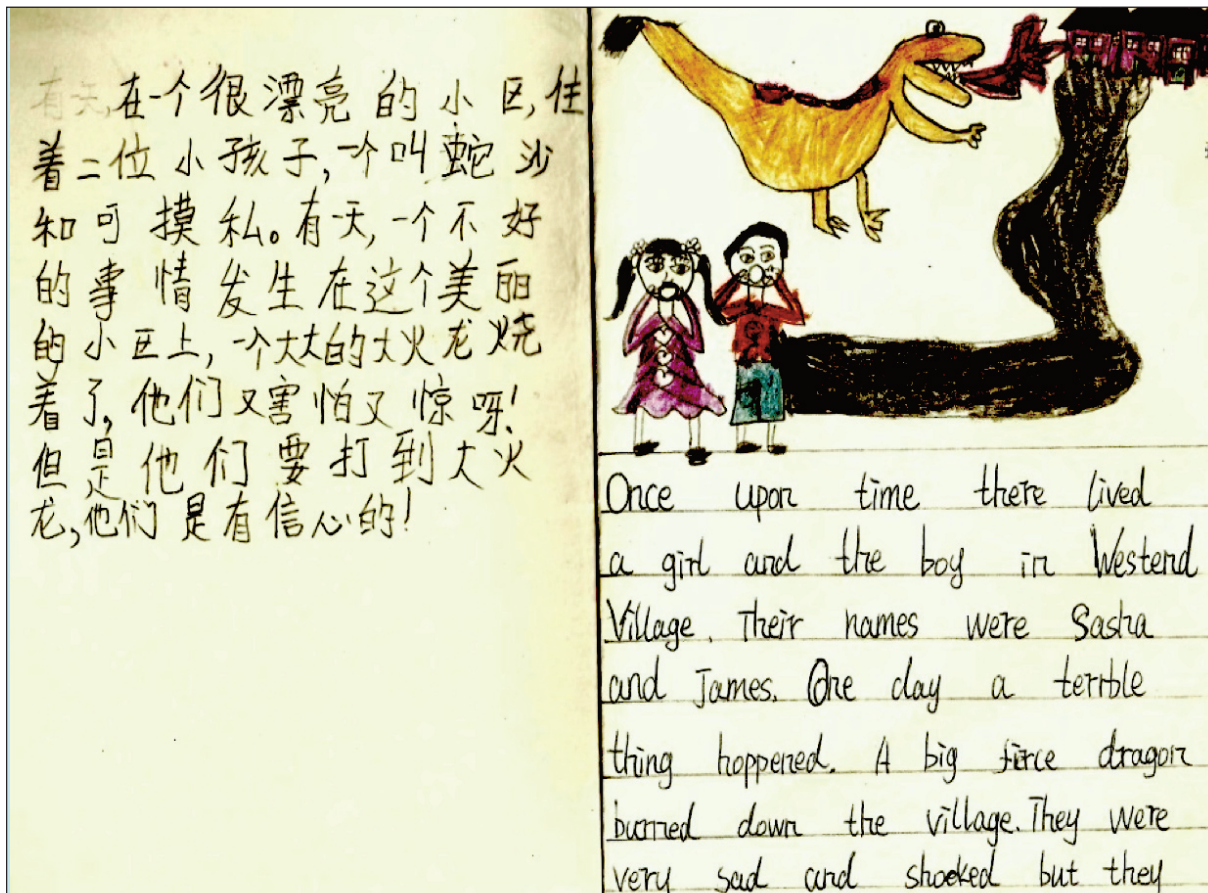 有天,在一个很漂亮的小区,住
着二位小孩子,一个叫蛇沙
和可摸私。有天,一个不好
的事情发生在这个美丽
的小区上,一个大大的大火龙烧
着了,他们又害怕又惊呀!
但是他们要打到大火
龙,他们是有信心的!
Once upon time there lived
a girl and the boy in Westend
Village. Their names were Sasha
and James. One day a terrble
thing hoppened. A big firce dragon
burned down the village. They were
very sad and shocked but they